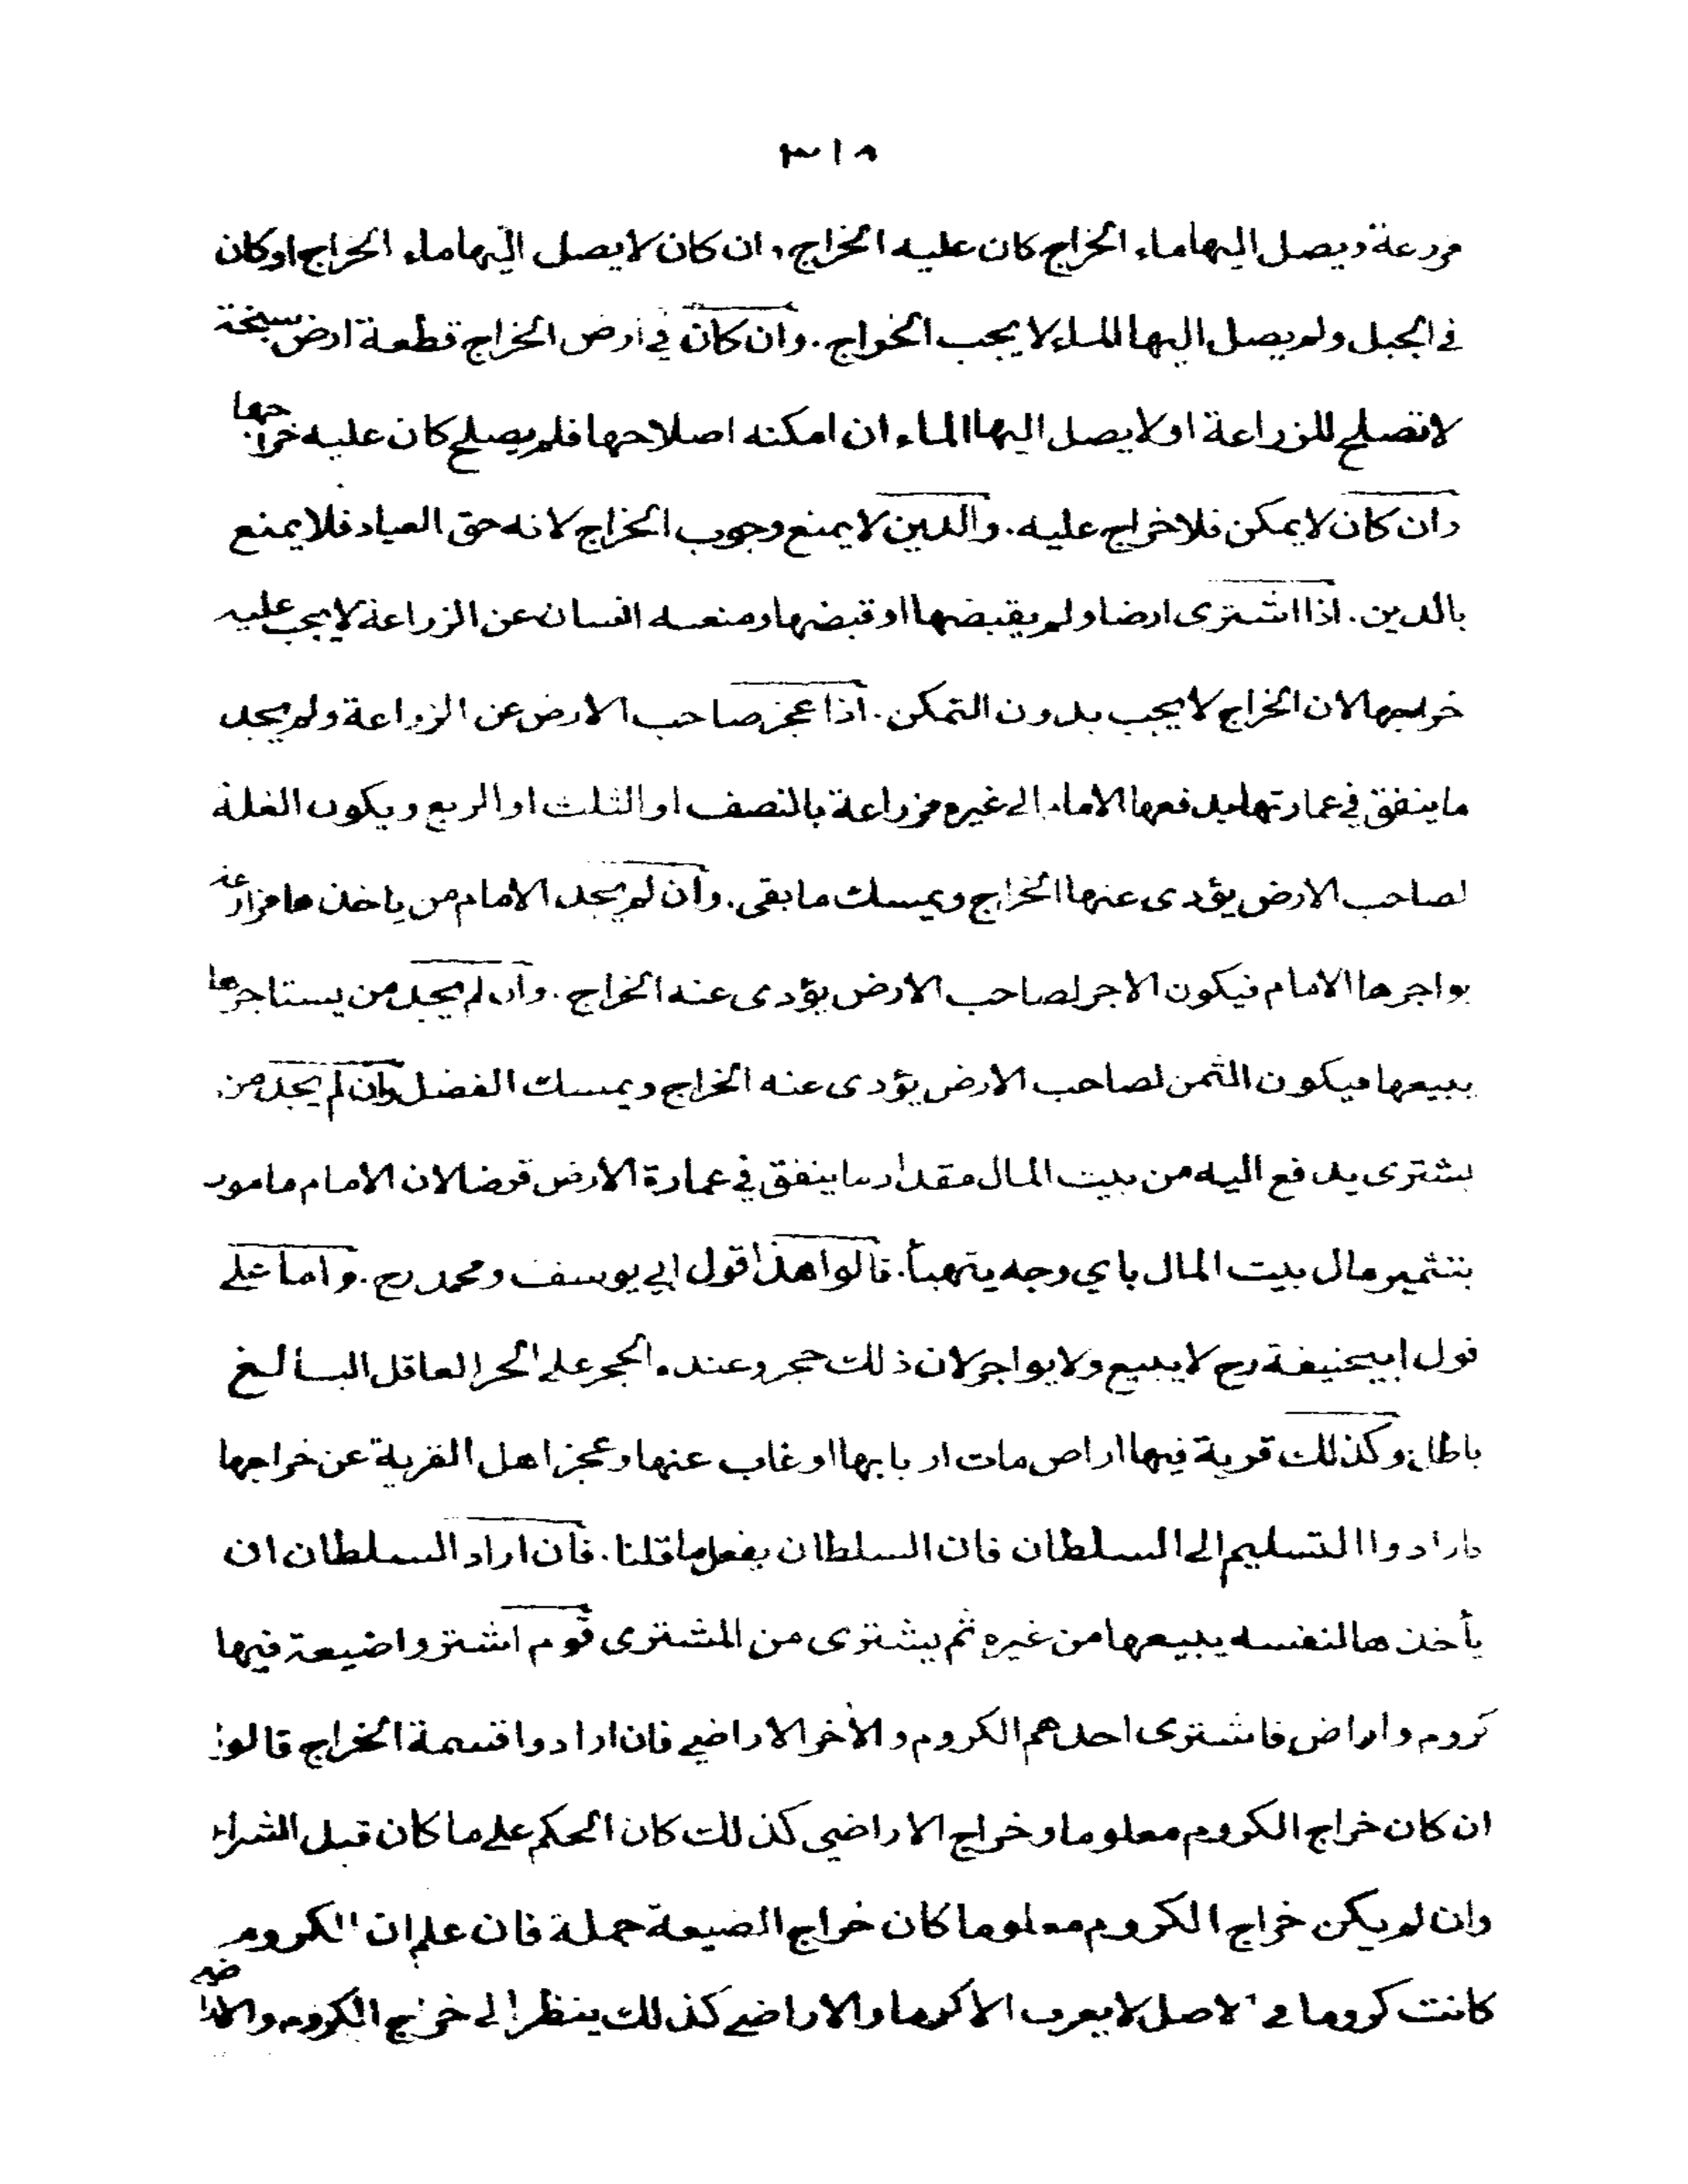 ٣١٨
مزرعة ويصل اليها ماء الخراج كان عليه الخراج، وان كان لا يصل اليها ماء الخراج او كان
في الجبل ولم يصل اليها الماء لا يجب الخراج . وان كان في ارض الخراج قطعة ارض سبخة
لا تصلح للزراعة او لا يصل اليها الماء ان امكنه اصلاحها فلم يصلح كان عليه خراجها
وان كان لا يمكن فلا خراج عليه . والدين لا يمنع وجوب الخراج لانه حق العباد فلا يمنع
بالدين . اذا اشترى ارضا ولم يقبضها او قبضها ومنعه انسان عن الزراعة لا يجب عليه
خراجها لان الخراج لا يجب بدون التمكن . اذا عجز صاحب الارض عن الزراعة ولم يجد
ما ينفق في عمارتها يدفعها الامام الى غيره مزراعة بالنصف او الثلث او الربع ويكون الغلة
لصاحب الارض يؤدى عنها الخراج ويمسك ما بقى . وان لم يجد الامام من ياخذها مزارعة
يواجرها الامام فيكون الاجر لصاحب الارض يؤدى عنه الخراج . وان لم يجد من يستاجرها
يبيعها فيكون الثمن لصاحب الارض يؤدى عنه الخراج ويمسك الفضل وان لم يجد من
يشترى يدفع اليه من بيت المال مقدار ما ينفق في عمارة الأرض قرضا لان الامام مامور
بتثمير مال بيت المال باي وجه يتهيأ . قالوا هذا قول ابي يوسف ومحمد رح . واما على
قول ابيحنيفة رح لا يبيع ولا يواجر لان ذلك حجر وعنده الحجر على الحر العاقل البالغ
باطل وكذلك قرية فيها اراض مات اربابها او غاب عنها وعجز اهل القرية عن خراجها
وارادوا التسليم الى السلطان فان السلطان يفعل ما قلنا . فان اراد السلطان ان
يأخذها لنفسه يبيعها من غيره ثم يشترى من المشترى قوم اشتروا ضيعة فيها
كروم واراض فاشترى احدهم الكروم والأخر الاراضي فان ارادوا قسمة الخراج قالوا
ان كان خراج الكروم معلوما وخراج الاراضي كذلك كان الحكم على ما كان قبل الشراء
وان لم يكن خراج الكروم معلوما كان خراج الضيعة جملة فان علم ان الكروم
كانت كروما في الاصل لا يعرف الا كرما والاراضي كذلك ينظر الى خراج الكروم والاراضي